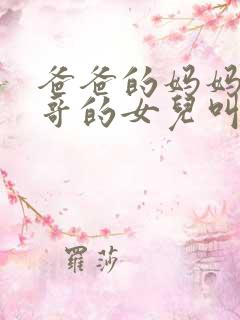 爸爸的妈妈
哥的女兒叫
羅莎